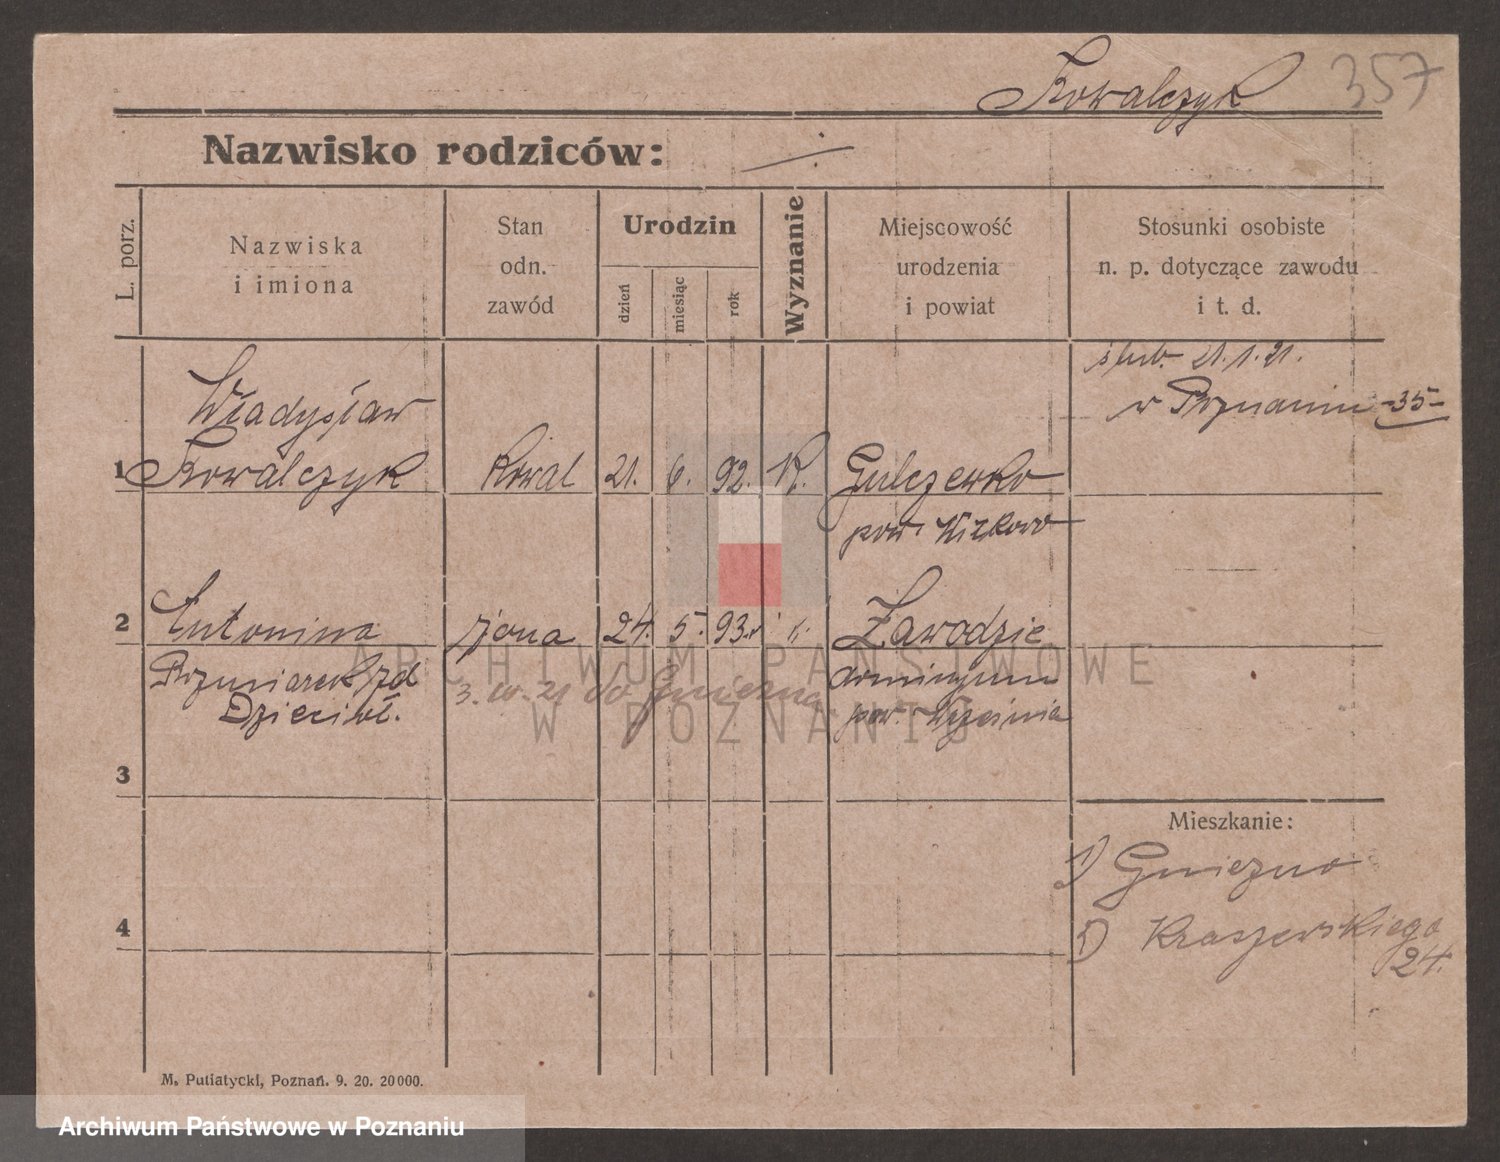 Kowalczyk 357
Nazwisko rodziców:
L. porz.
Nazwiska
i imiona
Stan
odn.
zawód
Urodzin
dzień
miesiąc
rok
Wyznanie
Miejscowość
urodzenia
i powiat
Stosunki osobiste
n. p. dotyczące zawodu
i t. d.
ślub. 21.1.21.
w Poznaniu -35-
Władysław
1 Kowalczyk kowal 21. 6. 92. K. Gulczewko
pow. Witkowo
2 Antonina żona 24. 5. 93. k. Zawodzie
dominium
pow. Września
3. 21 do Gniezna
ARCHIWUM PAŃSTWOWE
W POZNANIU
3
Mieszkanie:
1) Gniezno
Kraszewskiego
24.
4
M. Putiatycki, Poznań. 9. 20. 20000.
Archiwum Państwowe w Poznaniu